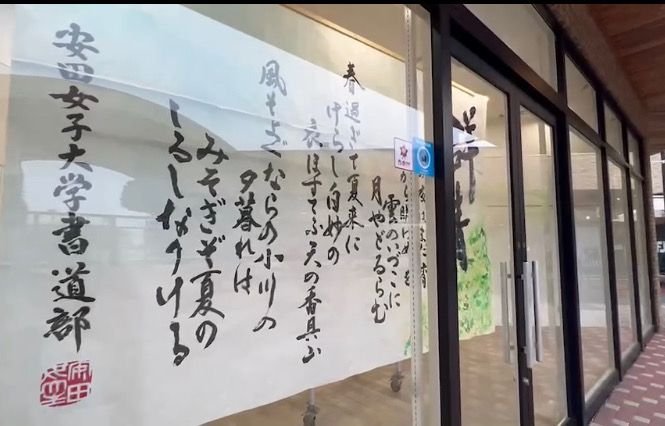 雲のいづこに
月やどるらむ
春過ぎて夏来に
けらし白妙の
衣ほすてふ天の香具山
風そよぐならの小川の
夕暮れは
みそぎぞ夏の
しるしなりける
安田女子大学書道部